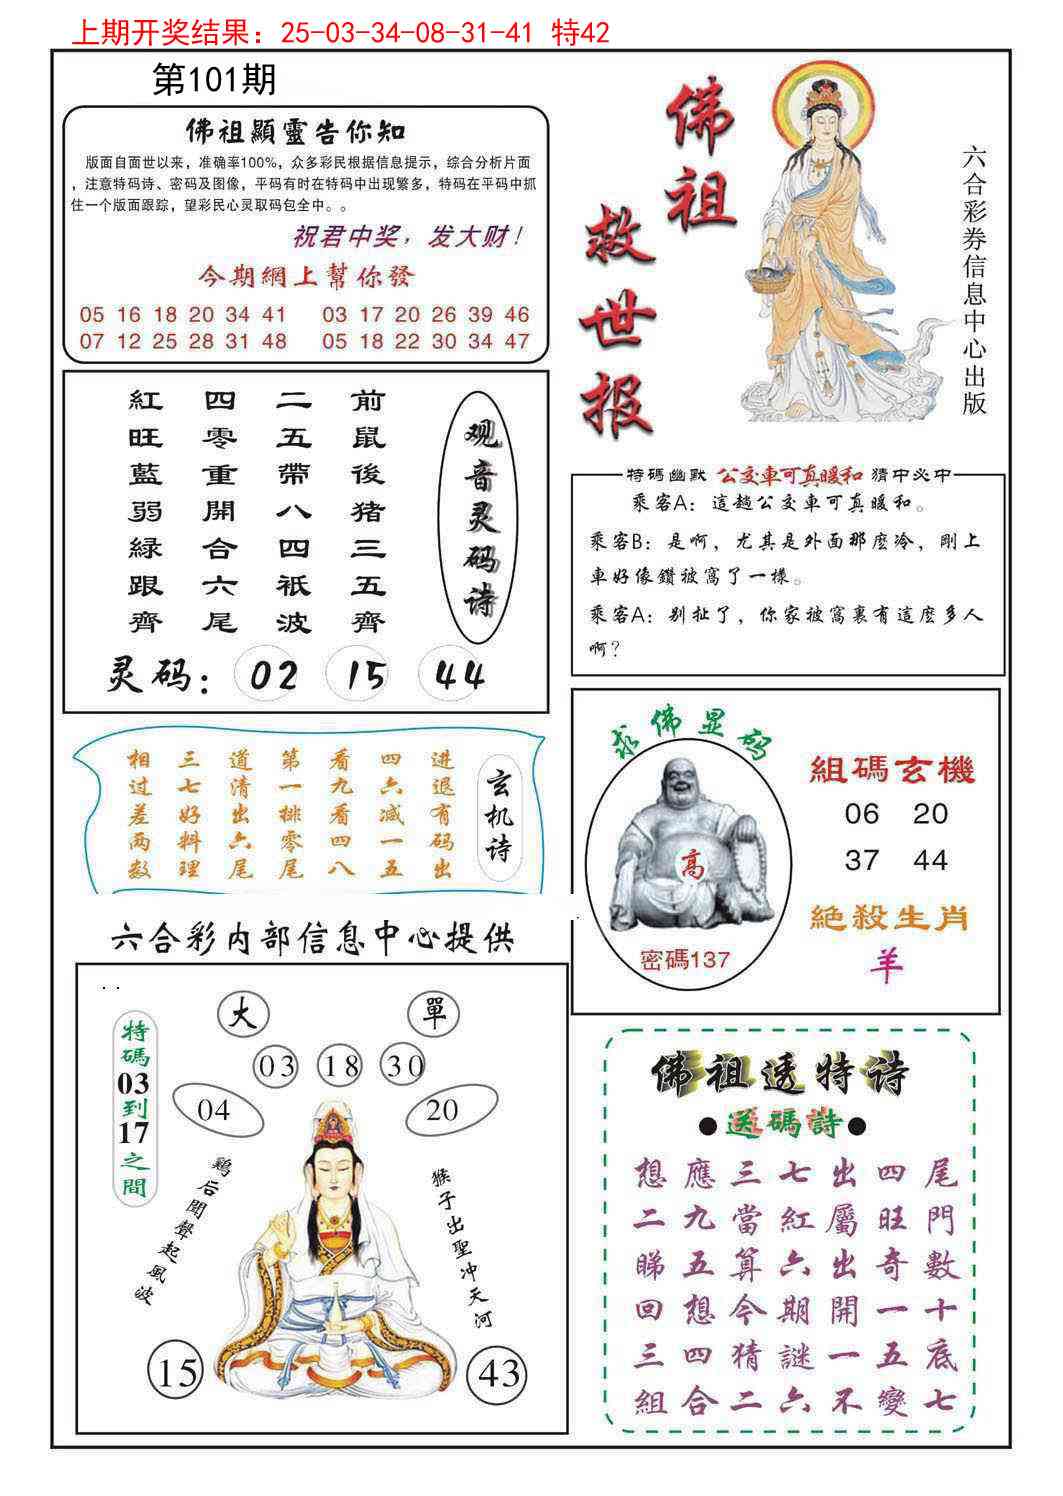 上期开奖结果：25-03-34-08-31-41 特42
第101期
佛祖顯靈告你知
版面自面世以来，准确率100%，众多彩民根据信息提示，综合分析片面
，注意特码诗、密码及图像，平码有时在特码中出现繁多，特码在平码中抓
住一个版面跟踪，望彩民心灵取码包全中。。
祝君中奖，发大财！
今期網上幫你發
05 16 18 20 34 41 03 17 20 26 39 46
07 12 25 28 31 48 05 18 22 30 34 47
佛祖
救世报
六合彩券信息中心出版
观音灵码诗
前鼠後猪三五齊
二五帶八四衹波
四零重開合六尾
紅旺藍弱緑跟齊
灵码：02 15 44
特碼幽默 公交車可真暖和 猜中必中
乘客A：這趟公交車可真暖和。
乘客B：是啊，尤其是外面那麽冷，剛上
車好像鑽被窩了一樣。
乘客A：别扯了，你家被窩裏有這麽多人
啊？
玄机诗
进退有码出
四六减一五
看九看四八
第一排零尾
道清出六尾
三七好料理
相过差两数
求佛显码
高
密碼137
組碼玄機
06 20
37 44
絕殺生肖
羊
六合彩内部信息中心提供
. .
特碼03到17之間
大 單
03 18 30
04 20
鷄后聞聲起風波
猴子出聖冲天河
15 43
佛祖透特诗
●送碼詩●
想應三七出四尾
二九當紅屬旺門
睇五算六出奇數
回想今期開一十
三四猜謎一五底
組合二六不變七